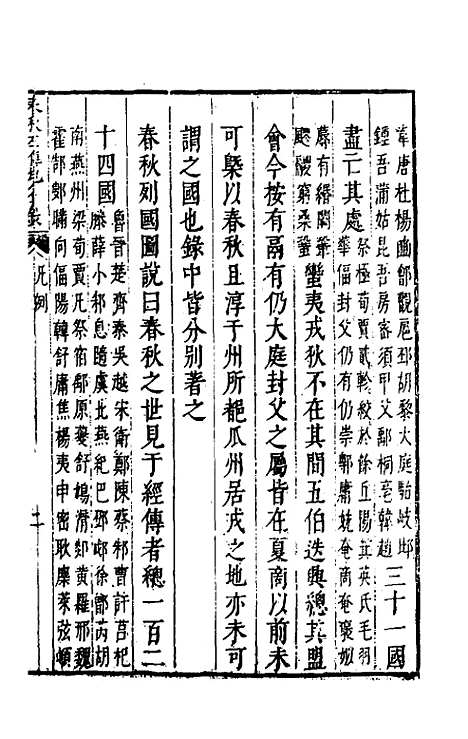 韋唐杜楊豳鄶觀扈邳胡黎大庭駘岐邶
鍾吾蒲姑昆吾房密須甲父鄅桐亳韓趙
三十一國
盡亡其處
祭極荀賈貳軫絞於餘丘陽箕英氏毛
華偪封父仍有仍崇鄟庸兢奄商奄褒姒
蓐有緡闕鞏
飂鬷窮桑
蠻夷戎狄不在其間五伯迭興總其盟
會今按有鬲有仍大庭封父之屬皆在夏商以前未
可槩以春秋且淳于州所都瓜州居戎之地亦未可
謂之國也錄中皆分別著之
春秋列國圖說曰春秋之世見于經傳者總一百二
十四國
魯晉楚齊秦吳越宋衛鄭陳蔡邾曹許莒杞
滕薛小邾息隨虞北燕紀巴鄧郕徐鄫芮胡
南燕州梁荀賈凡祭宿鄅原夔舒鳩滑郯黄羅邢魏
霍郜鄭鄣向偪陽韓舒庸焦楊夷申密耿麋萊弦頓
凡例
二